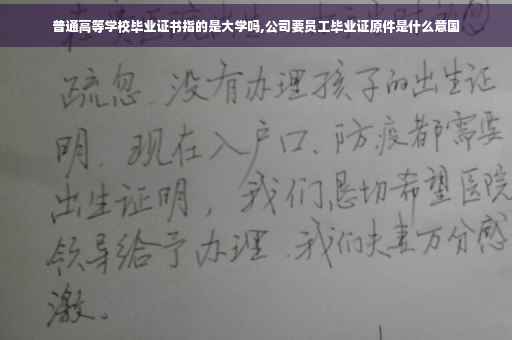 普通高等学校毕业证书指的是大学吗,公司要员工毕业证原件是什么意图
疏忽、没有办理孩子的出生证
明、现在入户口、防疫都需要
出生证明，我们恳切希望医院
领导给予办理、我们夫妻万分感
激。